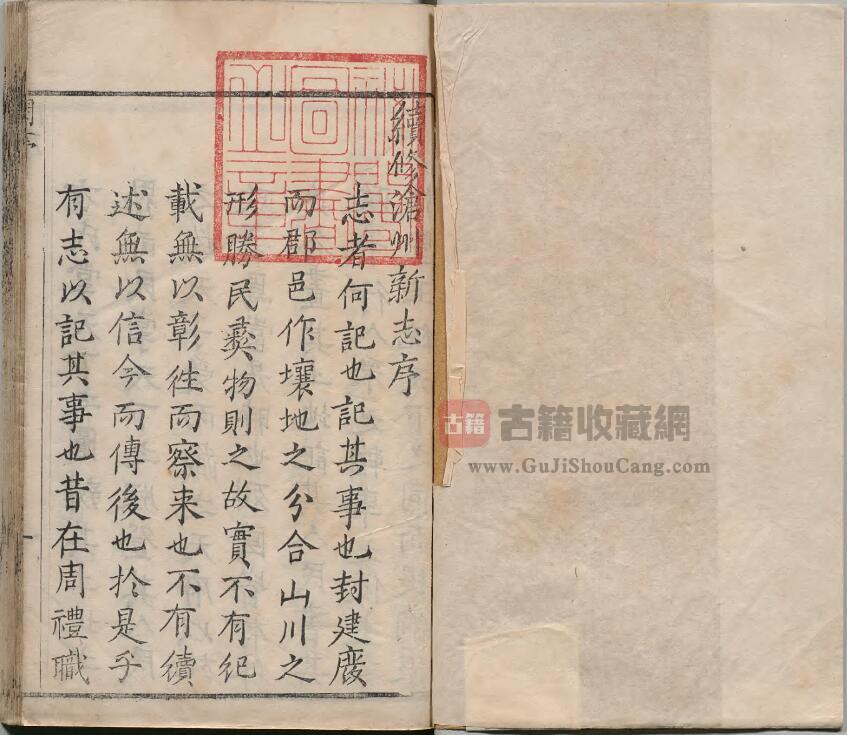 續修滄州新志序
志者何記也記其事也封建廢
而郡邑作壤地之分合山川之
形勝民彜物則之故實不有紀
載無以彰徃而察来也不有續
述無以信今而傳後也扵是乎
有志以記其事也昔在周禮職
古籍
古籍收藏網
www.GuJiShouCang.com